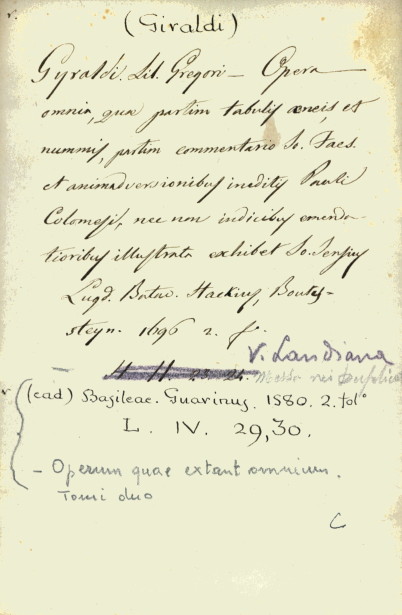 (Giraldi)
Gyraldi. Lil. Gregori — Opera
omnia, qua partim tabulis æneis et
nummis, partim commentario Io. Faes.
et animadversionibus ineditis Pauli
Colomesii, nec non indicibus emenda-
tioribus illustrata exhibet Io. Jensius
Lugd. Batav. Hackius, Boutes-
steyn. 1696 2. f°.
V. Landiana
4 H. 23. 24. Messo nei duplicati
(ead) Basileae. Guarinus. 1580. 2. fol°
L. IV. 29,30.
- Operum quae extant omnium.
Tomi duo
C